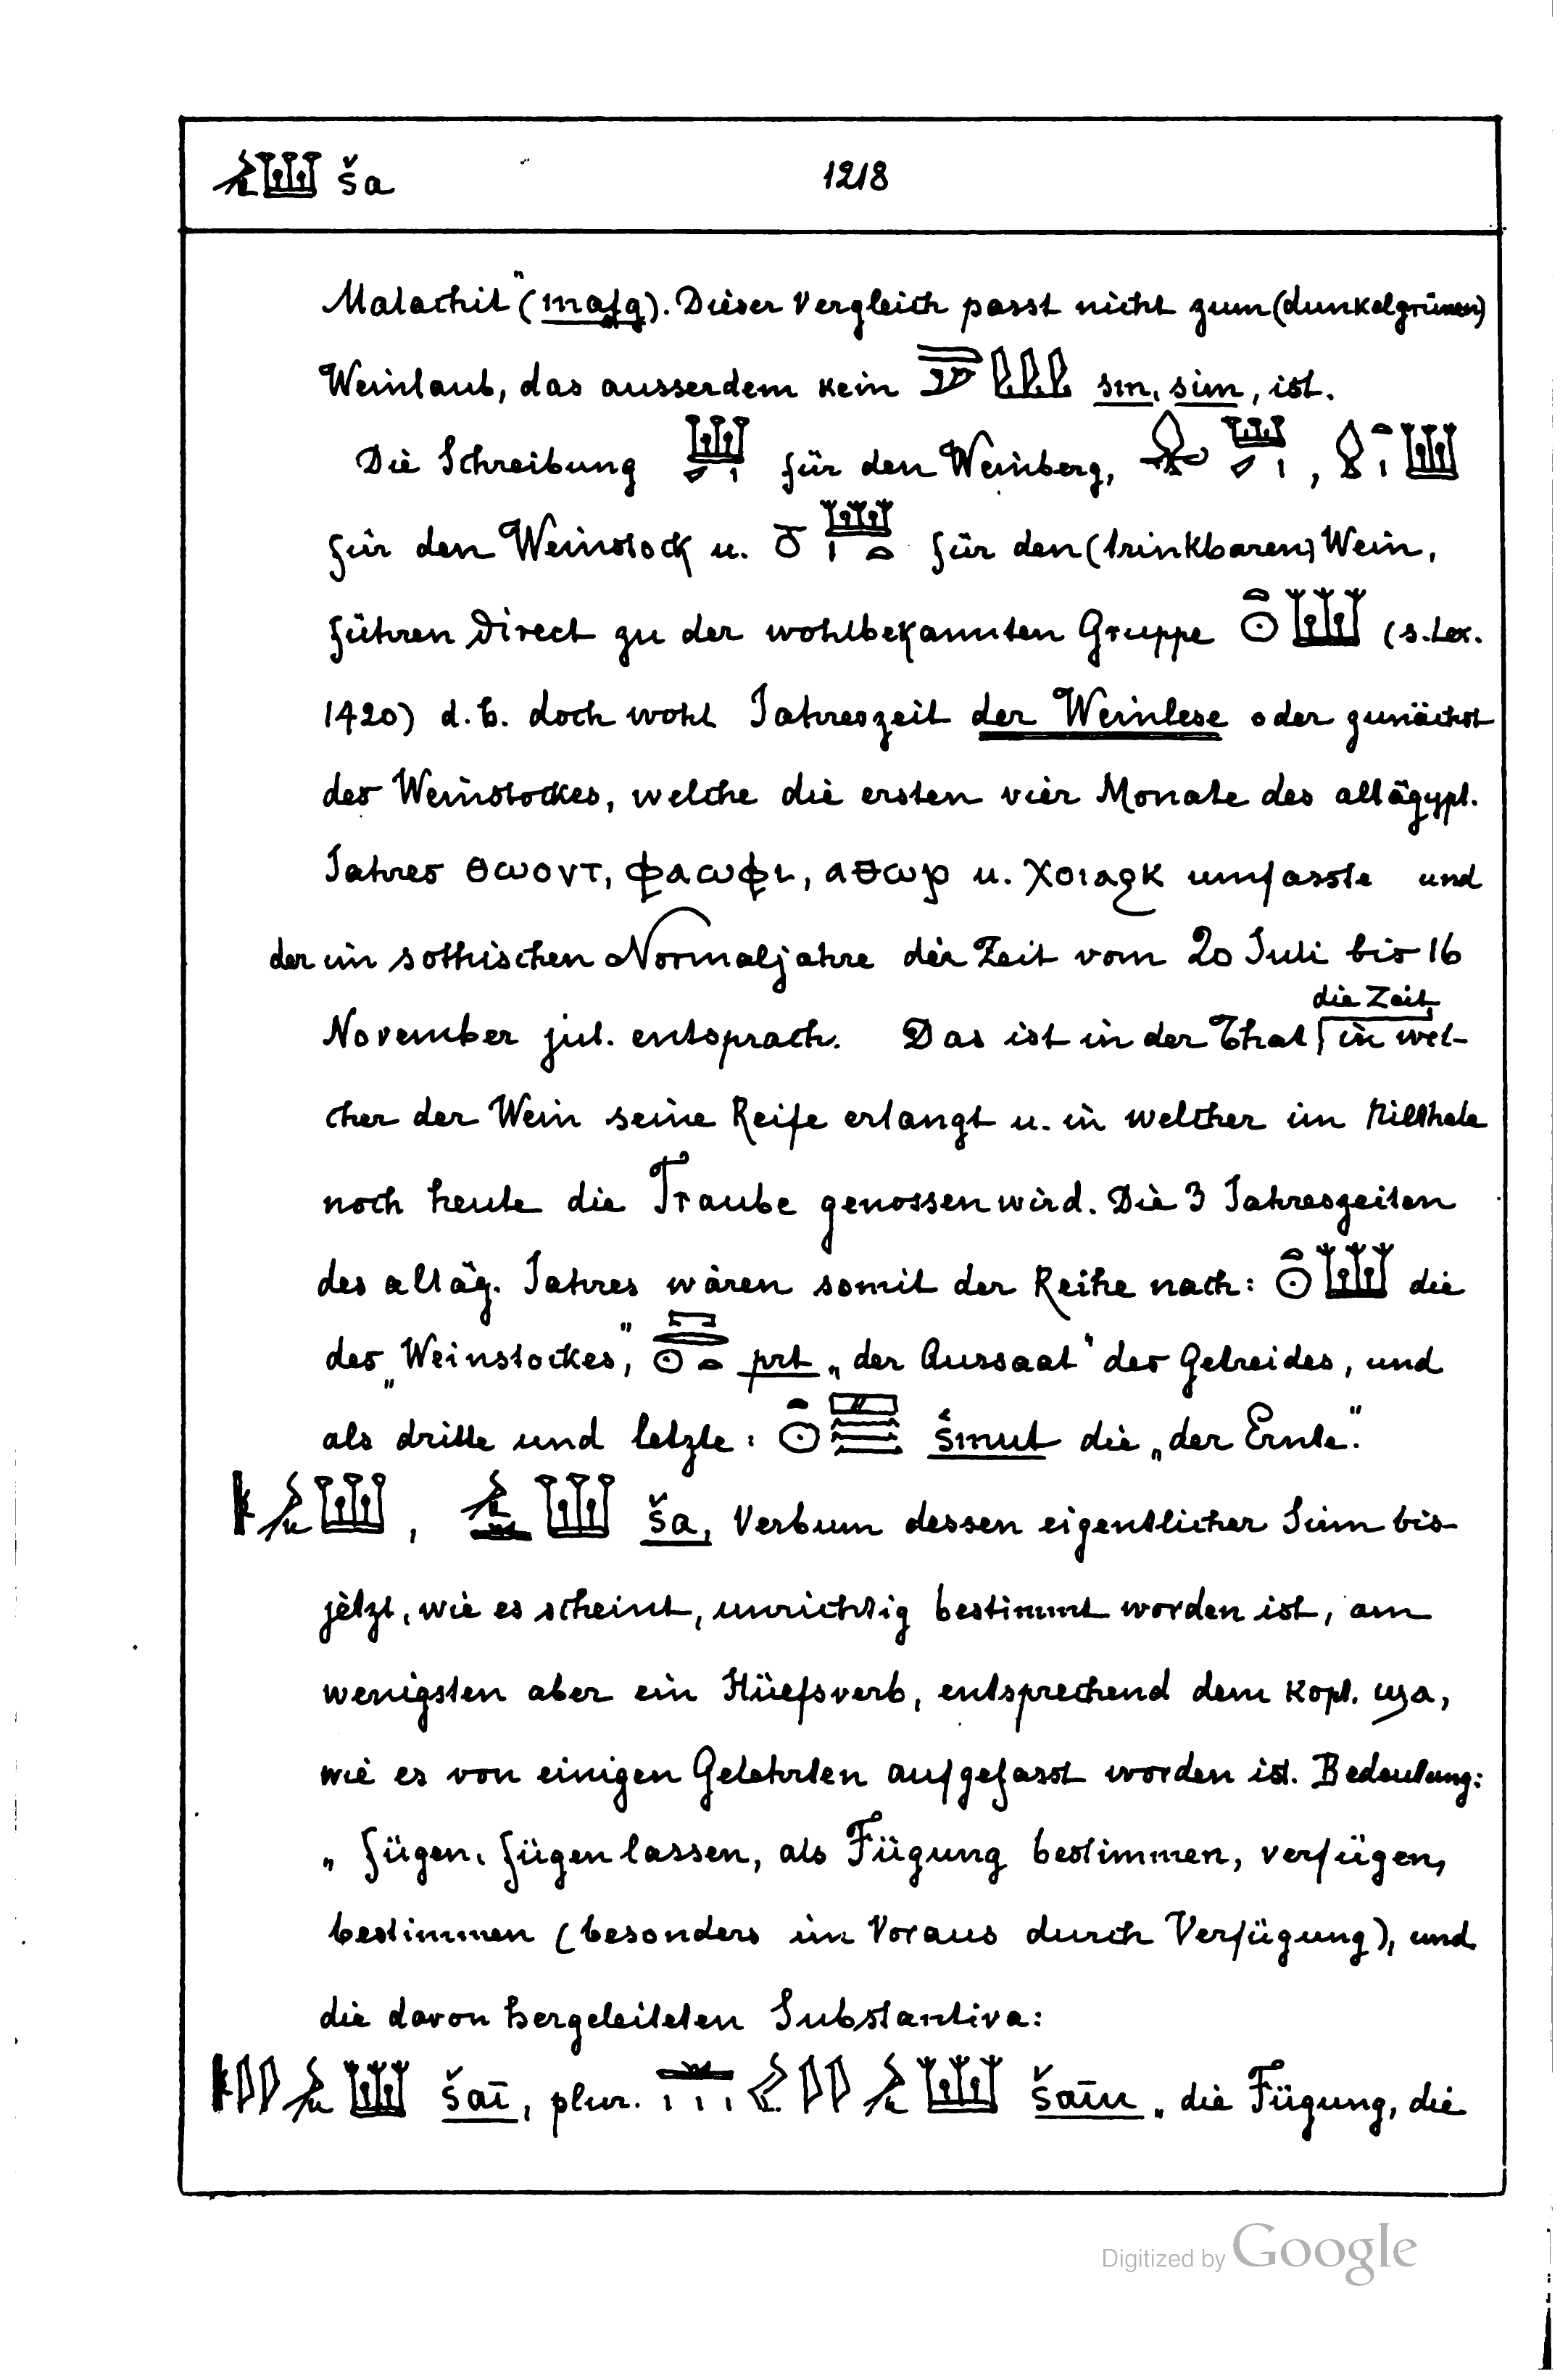 ša 1218
Malachit" (mafq). Dieser Vergleich passt nicht zum (dunkelgrünen)
Weinlaub, das ausserdem kein sm, sim, ist.
Die Schreibung für den Weinberg, ,
für den Weinstock u. für den (trinkbaren) Wein,
führen direct zu der wohlbekannten Gruppe (s. Lex.
1420) d. h. doch wohl Jahreszeit der Weinlese oder zunächst
des Weinstockes, welche die ersten vier Monate des altägypt.
Jahres ⲑⲱⲟⲩⲧ, ⲫⲁⲱⲫⲓ, ⲁⲑⲱⲣ u. ⲭⲟⲓⲁϩⲕ umfasste und
der im sothischen Normaljahre der Zeit vom 20 Juli bis 16
November jul. entsprach. Das ist in der That die Zeit in wel-
cher der Wein seine Reife erlangt u. in welcher im Nilthale
noch heute die Traube genossen wird. Die 3 Jahreszeiten
des altäg. Jahres wären somit der Reihe nach: die
des „Weinstockes", prt „der Aussaat" des Getreides, und
als dritte und letzte: šmut die „der Ernte."
, ša, Verbum dessen eigentlicher Sinn bis
jètzt, wie es scheint, unrichtig bestimmt worden ist, am
wenigsten aber ein Hülfsverb, entsprechend dem kopt. ϣⲁ,
wie es von einigen Gelehrten aufgefasst worden ist. Bedeutung:
„fügen, fügen lassen, als Fügung bestimmen, verfügen,
bestimmen (besonders im Voraus durch Verfügung), und
die davon hergeleiteten Substantiva:
šaī, plur. šaīu „die Fügung, die
Digitized by Google